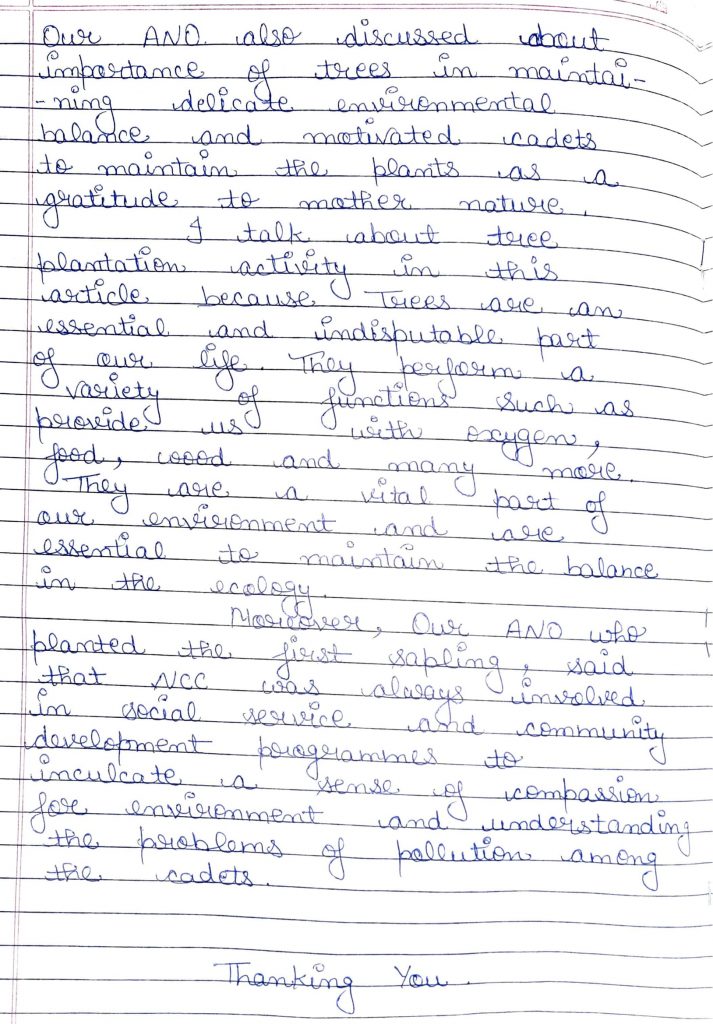 Our ANO. also discussed about
importance of trees in maintai-
-ning delicate environmental
balance and motivated cadets
to maintain the plants as a
gratitude to mother nature.
I talk about tree
plantation activity in this
article because Trees are an
essential and indisputable part
of our life. They perform a
variety of functions such as
provide us with oxygen,
food, wood and many more.
They are a vital part of
our environment and are
essential to maintain the balance
in the ecology.
Moreover, Our ANO who
planted the first sapling, said
that NCC was always involved
in social service and community
development programmes to
inculcate a sense of compassion
for environment and understanding
the problems of pollution among
the cadets.
Thanking You.